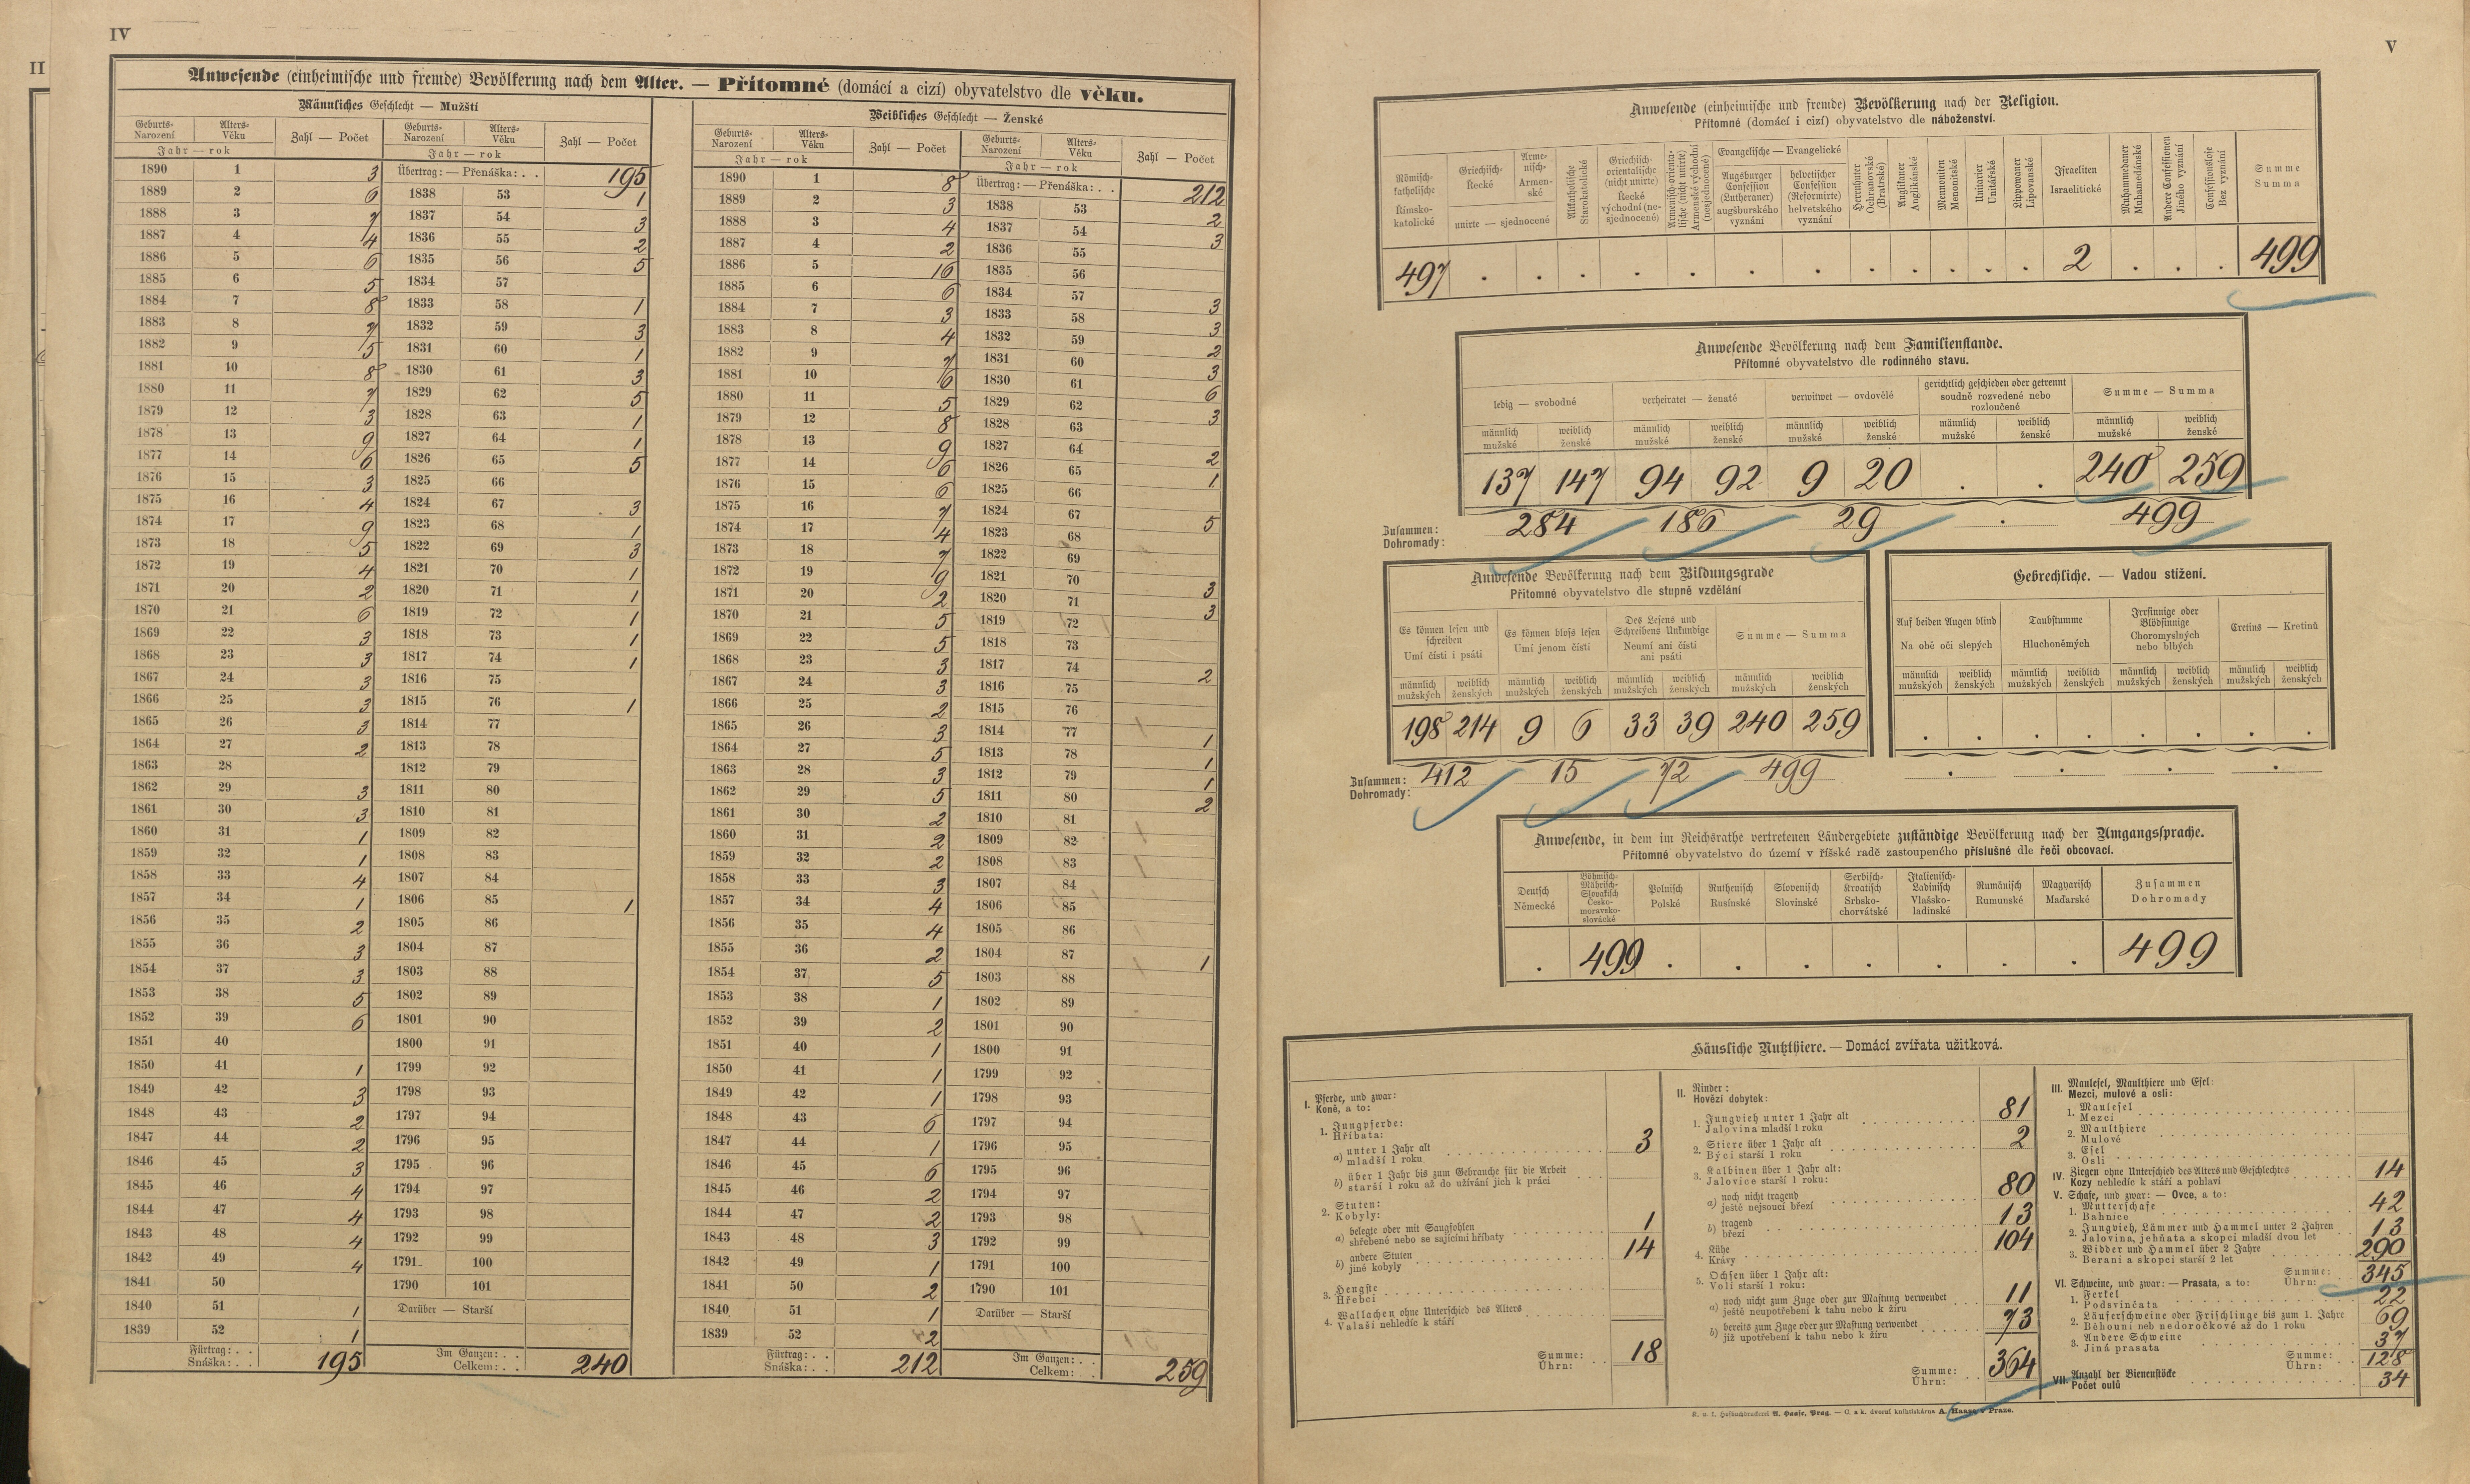 IV
II
Anwesende (einheimische und fremde) Bevölkerung nach dem Alter. — Přítomné (domácí a cizí) obyvatelstvo dle věku.
Männliches Geschlecht — Mužští
Geburts- Narození Alters- Věku Zahl — Počet Geburts- Narození Alters- Věku Zahl — Počet
Jahr — rok Jahr — rok
1890 1 3 Übertrag: — Přenáška: . . 195
1889 2 6 1838 53 1
1888 3 7 1837 54 3
1887 4 4 1836 55 2
1886 5 6 1835 56 5
1885 6 5 1834 57
1884 7 8 1833 58 1
1883 8 7 1832 59 3
1882 9 5 1831 60 1
1881 10 8 1830 61 3
1880 11 7 1829 62 5
1879 12 3 1828 63 1
1878 13 9 1827 64 1
1877 14 6 1826 65 5
1876 15 3 1825 66
1875 16 4 1824 67 3
1874 17 9 1823 68 1
1873 18 5 1822 69 3
1872 19 4 1821 70 1
1871 20 2 1820 71 1
1870 21 6 1819 72 1
1869 22 3 1818 73 1
1868 23 3 1817 74 1
1867 24 3 1816 75
1866 25 3 1815 76 1
1865 26 3 1814 77
1864 27 2 1813 78
1863 28 1812 79
1862 29 3 1811 80
1861 30 3 1810 81
1860 31 1 1809 82
1859 32 1 1808 83
1858 33 4 1807 84
1857 34 1 1806 85 1
1856 35 2 1805 86
1855 36 3 1804 87
1854 37 3 1803 88
1853 38 5 1802 89
1852 39 6 1801 90
1851 40 1800 91
1850 41 1 1799 92
1849 42 3 1798 93
1848 43 2 1797 94
1847 44 2 1796 95
1846 45 3 1795 96
1845 46 4 1794 97
1844 47 4 1793 98
1843 48 4 1792 99
1842 49 4 1791 100
1841 50 1790 101
1840 51 1 Darüber — Starší
1839 52 1
Fürtrag: . . Snáška: . . 195 Im Ganzen: . . Celkem: . . 240
Weibliches Geschlecht — Ženské
Geburts- Narození Alters- Věku Zahl — Počet Geburts- Narození Alters- Věku Zahl — Počet
Jahr — rok Jahr — rok
1890 1 8 Übertrag: — Přenáška: . . 212
1889 2 3 1838 53 2
1888 3 4 1837 54 3
1887 4 2 1836 55
1886 5 16 1835 56
1885 6 6 1834 57 3
1884 7 3 1833 58 3
1883 8 4 1832 59 2
1882 9 7 1831 60 3
1881 10 6 1830 61 6
1880 11 5 1829 62 3
1879 12 8 1828 63
1878 13 9 1827 64 2
1877 14 6 1826 65 1
1876 15 6 1825 66
1875 16 7 1824 67 5
1874 17 4 1823 68
1873 18 7 1822 69
1872 19 9 1821 70 3
1871 20 2 1820 71 3
1870 21 5 1819 72
1869 22 5 1818 73
1868 23 3 1817 74 2
1867 24 3 1816 75
1866 25 2 1815 76
1865 26 3 1814 77 1
1864 27 5 1813 78 1
1863 28 3 1812 79 1
1862 29 5 1811 80 2
1861 30 2 1810 81
1860 31 2 1809 82
1859 32 2 1808 83
1858 33 3 1807 84
1857 34 4 1806 85
1856 35 4 1805 86
1855 36 2 1804 87 1
1854 37 5 1803 88
1853 38 1 1802 89
1852 39 2 1801 90
1851 40 1 1800 91
1850 41 1 1799 92
1849 42 1 1798 93
1848 43 6 1797 94
1847 44 1 1796 95
1846 45 6 1795 96
1845 46 2 1794 97
1844 47 2 1793 98
1843 48 3 1792 99
1842 49 1 1791 100
1841 50 2 1790 101
1840 51 1 Darüber — Starší
1839 52 2
Fürtrag: . . Snáška: . . 212 Im Ganzen: . . Celkem: . . 259
V
Anwesende (einheimische und fremde) Bevölkerung nach der Religion.
Přítomné (domácí i cizí) obyvatelstvo dle náboženství.
Römisch-katholische Římsko-katolické
Griechisch- Řecké
Armenisch- Armenské
unirte — sjednocené
Altkatholische Starokatolické
Griechisch-orientalische (nicht unirte) Řecké východní (nesjednocené)
Armenisch-orientalische (nicht unirte) Armenské východní (nesjednocené)
Evangelische — Evangelické
Augsburger Confession (Lutheraner) augšburského vyznání
helvetischer Confession (Reformirte) helvetského vyznání
Herrnhuter Ochranovské (Bratrské)
Anglikaner Anglikánské
Mennoniten Menonitské
Unitarier Unitářské
Lippowaner Lipovanské
Israeliten Israelitické
Muhammedaner Muhamedánské
Andere Confessionen Jiného vyznání
Confessionslose Bez vyznání
Summe Summa
497 . . . . . . . . . . . . 2 . . . 499
Anwesende Bevölkerung nach dem Familienstande.
Přítomné obyvatelstvo dle rodinného stavu.
ledig — svobodné verheiratet — ženaté verwitwet — ovdovělé gerichtlich geschieden oder getrennt soudně rozvedené nebo rozloučené Summe — Summa
männlich mužské weiblich ženské männlich mužské weiblich ženské männlich mužské weiblich ženské männlich mužské weiblich ženské männlich mužské weiblich ženské
137 147 94 92 9 20 . . 240 259
Zusammen: Dohromady: 284 186 29 . 499
Anwesende Bevölkerung nach dem Bildungsgrade
Přítomné obyvatelstvo dle stupně vzdělání
Es können lesen und schreiben Umí čísti i psáti
Es können blofs lesen Umí jenom čísti
Des Lesens und Schreibens Unkundige Neumí ani čísti ani psáti
Summe — Summa
männlich mužských weiblich ženských männlich mužských weiblich ženských männlich mužských weiblich ženských männlich mužských weiblich ženských
198 214 9 6 33 39 240 259
Zusammen: Dohromady: 412 15 72 499
Gebrechliche. — Vadou stižení.
Auf beiden Augen blind Na obě oči slepých
Taubstumme Hluchoněmých
Irrsinnige oder Blödsinnige Choromyslných nebo blbých
Cretins — Kretinů
männlich mužských weiblich ženských männlich mužských weiblich ženských männlich mužských weiblich ženských männlich mužských weiblich ženských
. . . . . . . .
. . . .
Anwesende, in dem im Reichsrathe vertretenen Ländergebiete zuständige Bevölkerung nach der Umgangssprache.
Přítomné obyvatelstvo do území v říšské radě zastoupeného příslušné dle řeči obcovací.
Deutsch Německé
Böhmisch-Mährisch-Slovakisch Česko-moravsko-slovácké
Polnisch Polské
Ruthenisch Rusínské
Slovenisch Slovinské
Serbisch-Kroatisch Srbsko-chorvátské
Italienisch-Ladinisch Vlašsko-ladinské
Rumänisch Rumunské
Magyarisch Maďarské
Zusammen Dohromady
. 499 . . . . . . . 499
Häusliche Nutzthiere. — Domácí zvířata užitková.
I. Pferde, und zwar:
Koně, a to:
1. Jungpferde:
Hříbata:
a) unter 1 Jahr alt
mladší 1 roku 3
b) über 1 Jahr bis zum Gebrauche für die Arbeit
starší 1 roku až do užívání jich k práci
2. Stuten:
Kobyly:
a) belegte oder mit Saugfohlen
shřebené nebo se sajícími hříbaty 1
b) andere Stuten
jiné kobyly 14
3. Hengste
Hřebci
4. Wallachen ohne Unterschied des Alters
Valaši nehledíc k stáří
Summe: Úhrn: 18
II. Rinder:
Hovězí dobytek:
1. Jungvieh unter 1 Jahr alt
Jalovina mladší 1 roku 81
2. Stiere über 1 Jahr alt
Býci starší 1 roku 2
3. Kalbinen über 1 Jahr alt:
Jalovice starší 1 roku:
a) noch nicht tragend
ještě nejsoucí březí 80
b) tragend
březí 13
4. Kühe
Krávy 104
5. Ochsen über 1 Jahr alt:
Voli starší 1 roku:
a) noch nicht zum Zuge oder zur Mastung verwendet
ještě neupotřebení k tahu nebo k žíru 11
b) bereits zum Zuge oder zur Mastung verwendet
již upotřebení k tahu nebo k žíru 73
Summe: Úhrn: 364
III. Maulesel, Maulthiere und Esel:
Mezci, mulové a osli:
1. Maulesel
Mezci
2. Maulthiere
Mulové
3. Esel
Osli
IV. Ziegen ohne Unterschied des Alters und Geschlechtes
Kozy nehledíc k stáří a pohlaví 14
V. Schafe, und zwar: — Ovce, a to:
1. Mutterschafe
Bahnice 42
2. Jungvieh, Lämmer und Hammel unter 2 Jahren
Jalovina, jehňata a skopci mladší dvou let 13
3. Widder und Hammel über 2 Jahre
Berani a skopci starší 2 let 290
Summe: Úhrn: 345
VI. Schweine, und zwar: — Prasata, a to:
1. Ferkel
Podsvinčata 22
2. Läuferschweine oder Frischlinge bis zum 1. Jahre
Běhouni neb nedoročkové až do 1 roku 69
3. Andere Schweine
Jiná prasata 37
Summe: Úhrn: 128
VII. Anzahl der Bienenstöcke
Počet oulů 34
K. u. k. Hofbuchdruckerei A. Haase, Prag. — C. a k. dvorní knihtiskárna A. Haase v Praze.